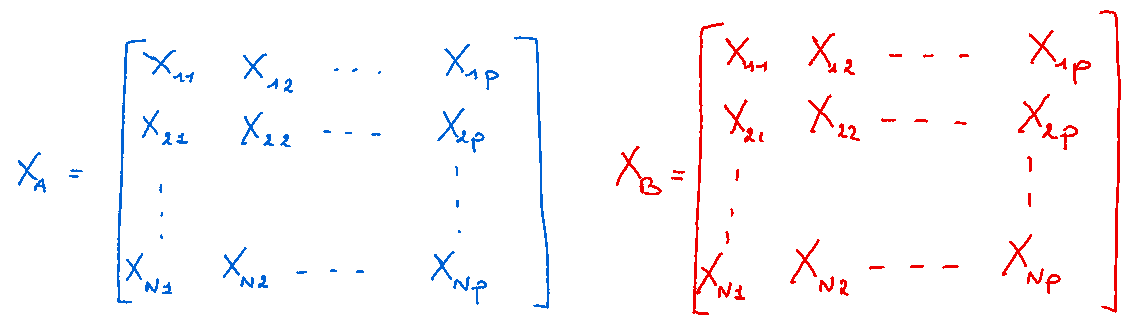 X₁₁ X₁₂ ... X₁p
X₂₁ X₂₂ --- X₂p
X_A =
X_N1 X_N2 --- X_Np
X₁₁ X₁₂ --- X₁p
X₂₁ X₂₂ --- X₂p
X_B =
X_N1 X_N2 --- X_Np